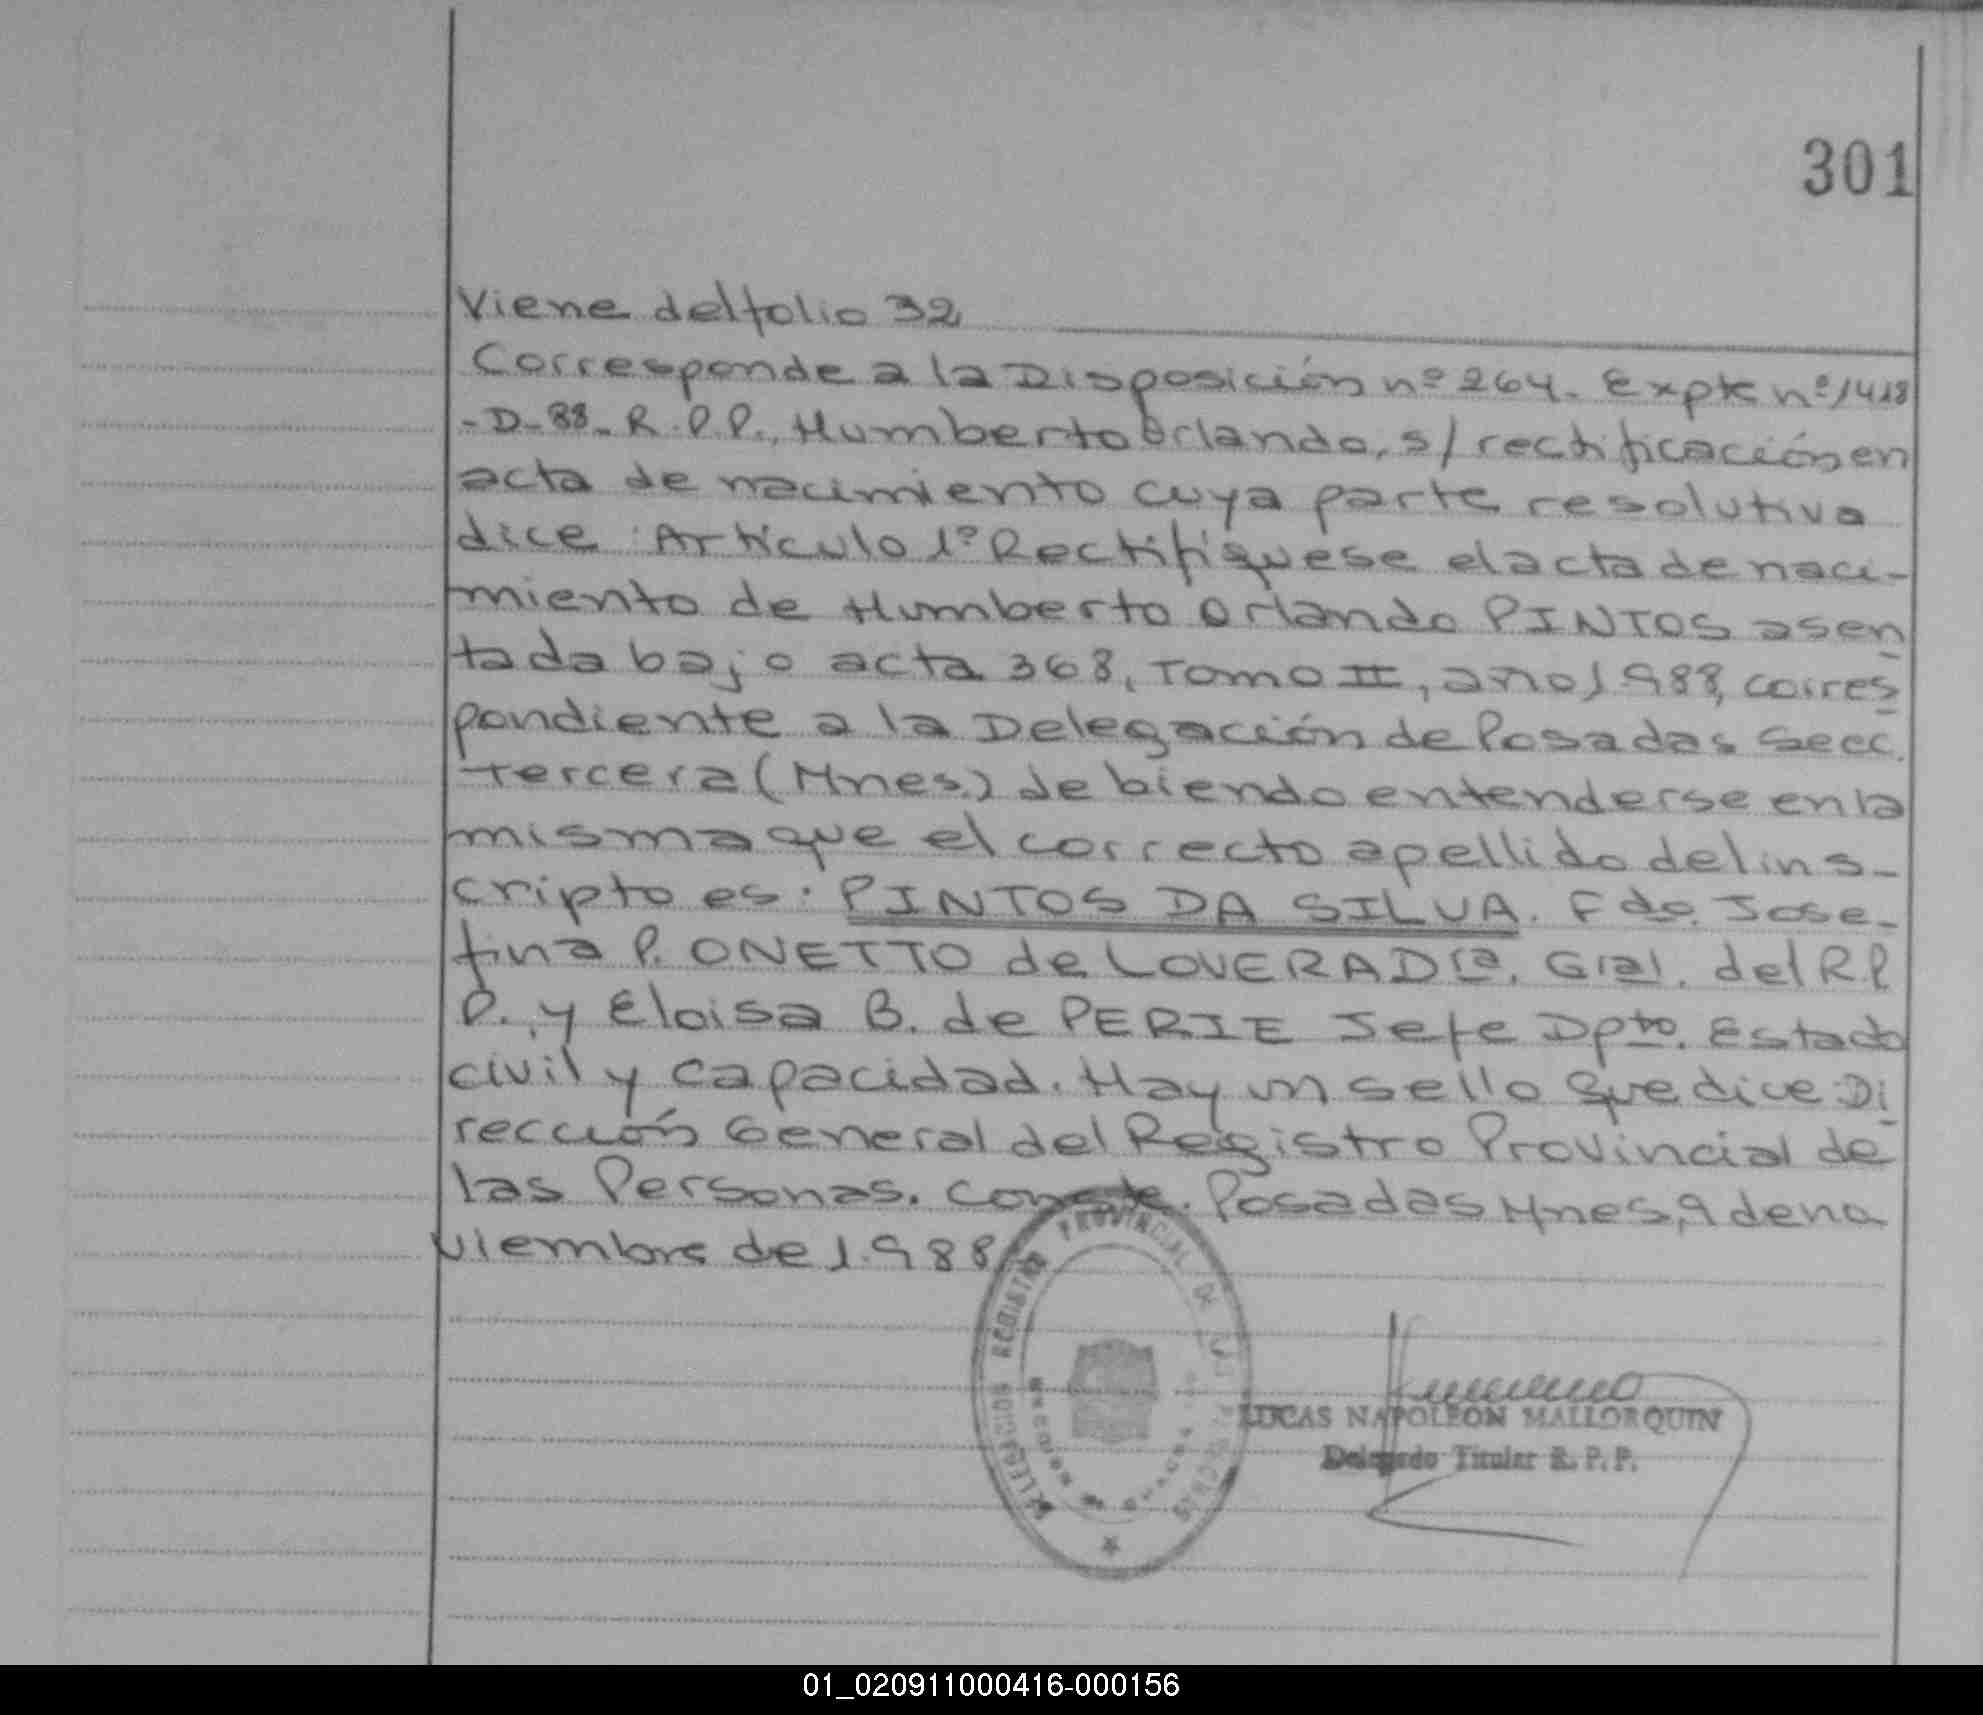 301
Viene del folio 32
Corresponde a la Disposición nº 264. Expte nº 1418
-D-88- R.P.P., Humberto Orlando, s/ rectificación en
acta de nacimiento cuya parte resolutiva
dice: Artículo 1º Rectifíquese el acta de naci-
miento de Humberto Orlando PINTOS asen
tada bajo acta 368, Tomo II, año 1988, corres
pondiente a la Delegación de Posadas Secc.
Tercera (Mnes.) debiendo entenderse en la
misma que el correcto apellido del ins-
cripto es: PINTOS DA SILVA. Fdo. Jose-
fina P. ONETTO de LOVERA Dra. Gral. del R.P.
P., y Eloisa B. de PERIE Jefe Dpto. Estado
civil y capacidad. Hay un sello que dice: Di
rección General del Registro Provincial de
las Personas. Conste. Posadas Mnes, 9 de no
viembre de 1.988
REGISTRO PROVINCIAL DE LAS
LUCAS NAPOLEON MALLORQUIN
Delegado Titular R. P. P.
01_020911000416-000156